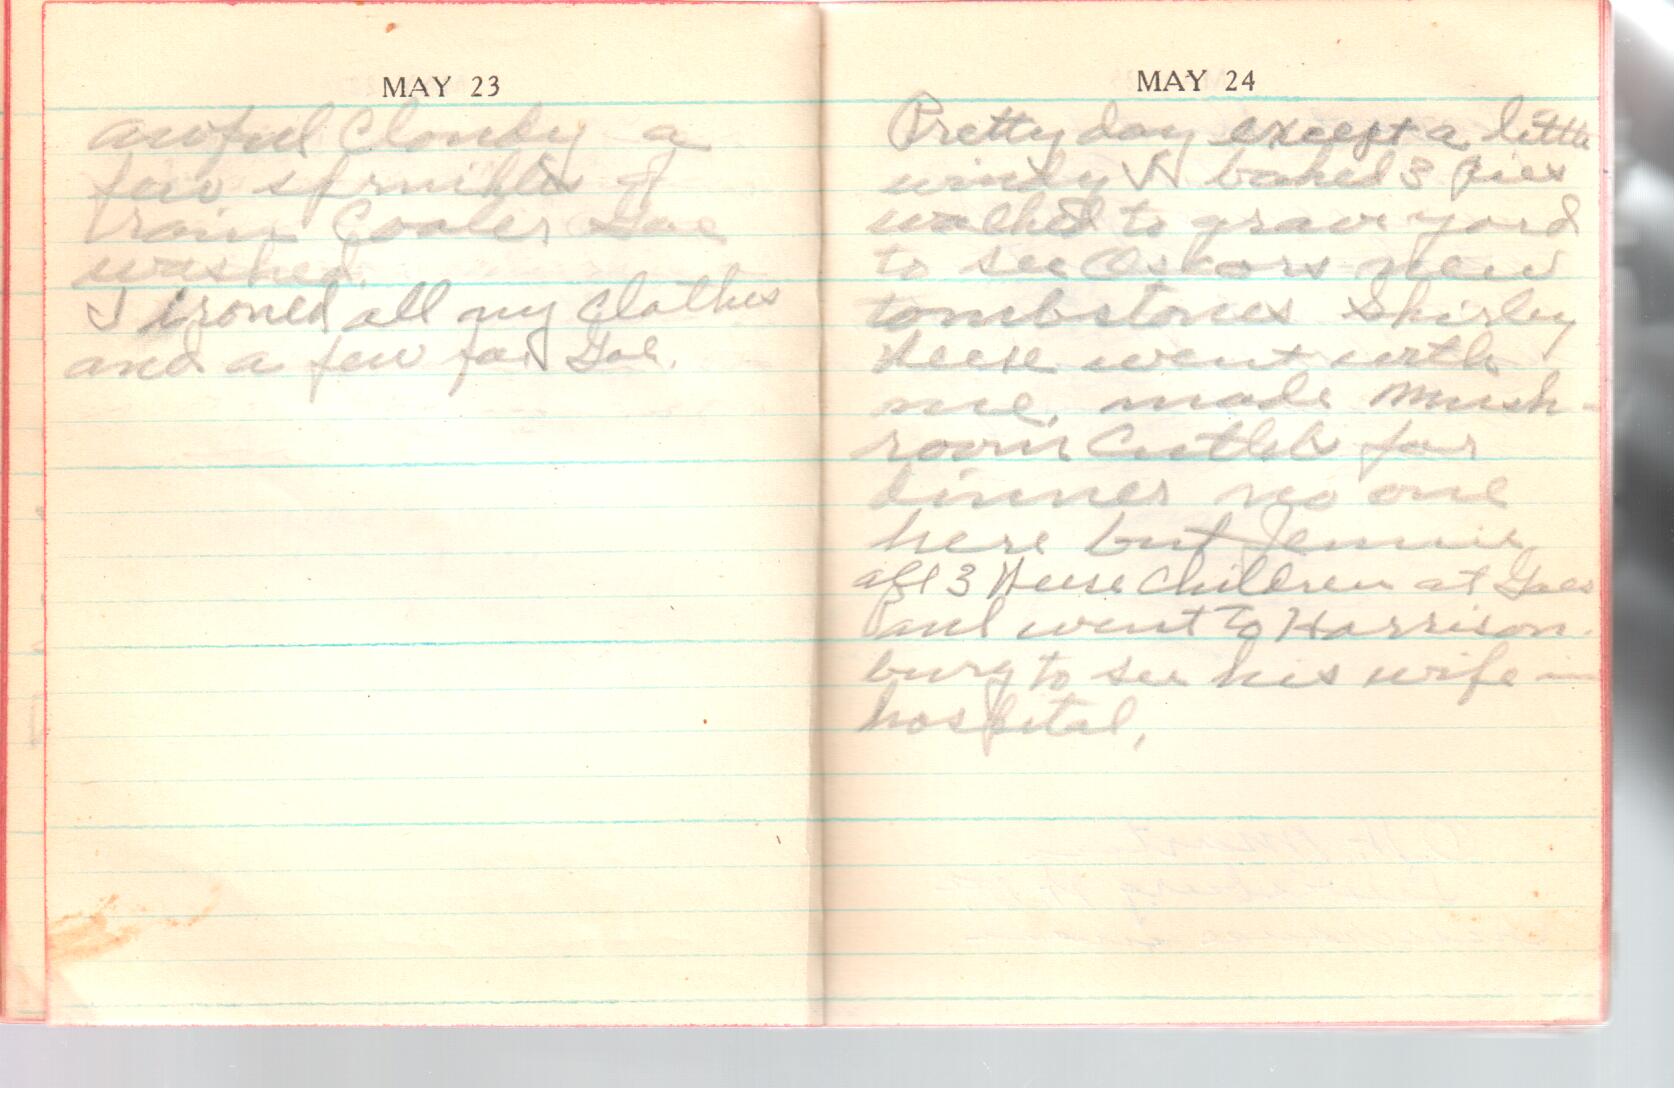 MAY 23
awful Cloudy a
few sprinkles of
rain Cooler
washed.
I ironed all my clothes
and a few for
MAY 24
Pretty day except a little
windy I baked 3 pies
walked to grave yard
to see Oskors new
tombstones Shirley
Heese went with
me. made mush-
room Cutlets for
dinner no one
here but Jennie
all 3 Heese Children at
Paul went to Harrison.
burg to see his wife in
hospital.